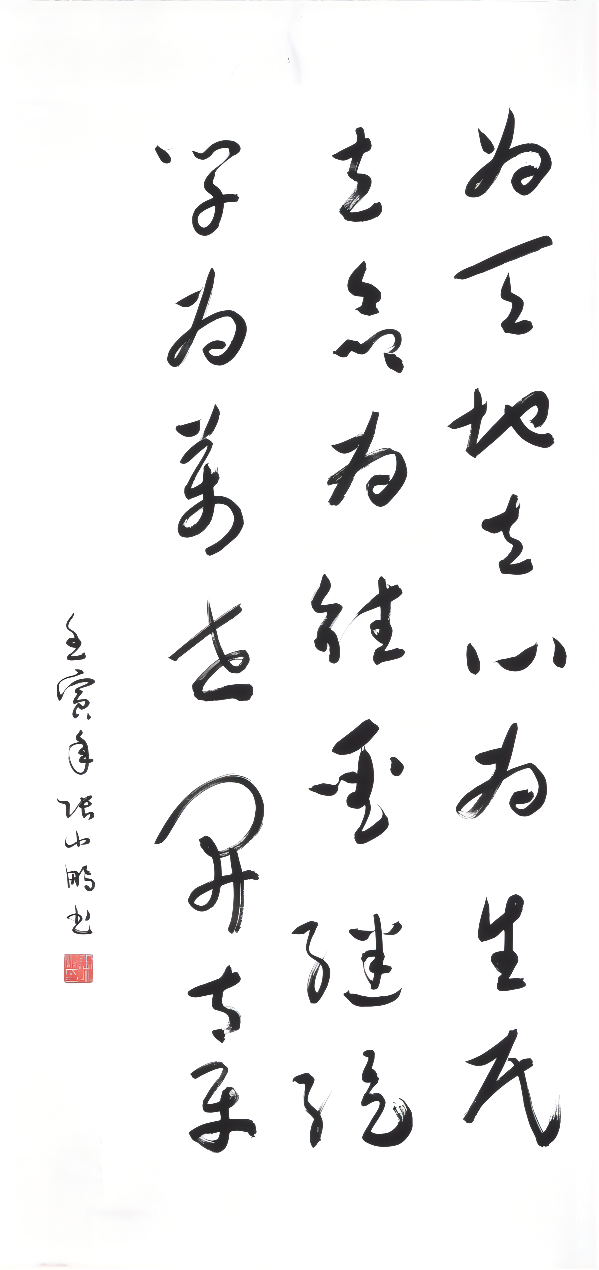 为天地立心为生民
立命为往圣继绝
学为萬世开太平
壬寅年张小鹏书